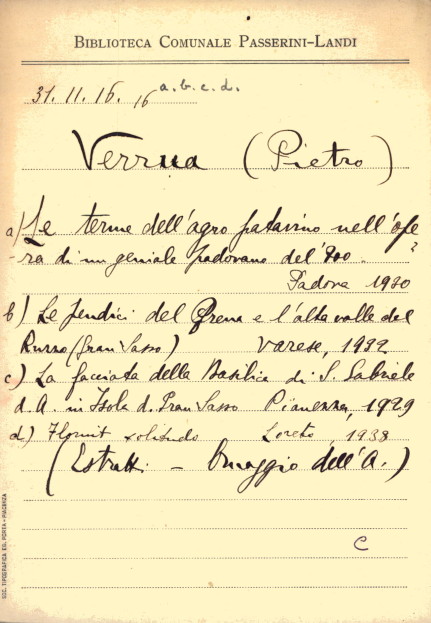 BIBLIOTECA COMUNALE PASSERINI-LANDI
31. 11. 16. 16 a. b. c. d.
Verrua (Pietro)
a) Le terme dell'agro patavino nell'ope
-ra di un geniale padovano del '700.
Padova 1930
b) Le pendici del Prena e l'alta valle del
Ruzzo (Gran Sasso) Varese, 1932
c) La facciata della Basilica di S. Gabriele
d. A. in Isola d. Gran Sasso Piacenza, 1929
d) solitudo Loreto, 1938
(Estratti - Omaggio dell'A.)
C
SOC. TIPOGRAFICA ED. PORTA - PIACENZA